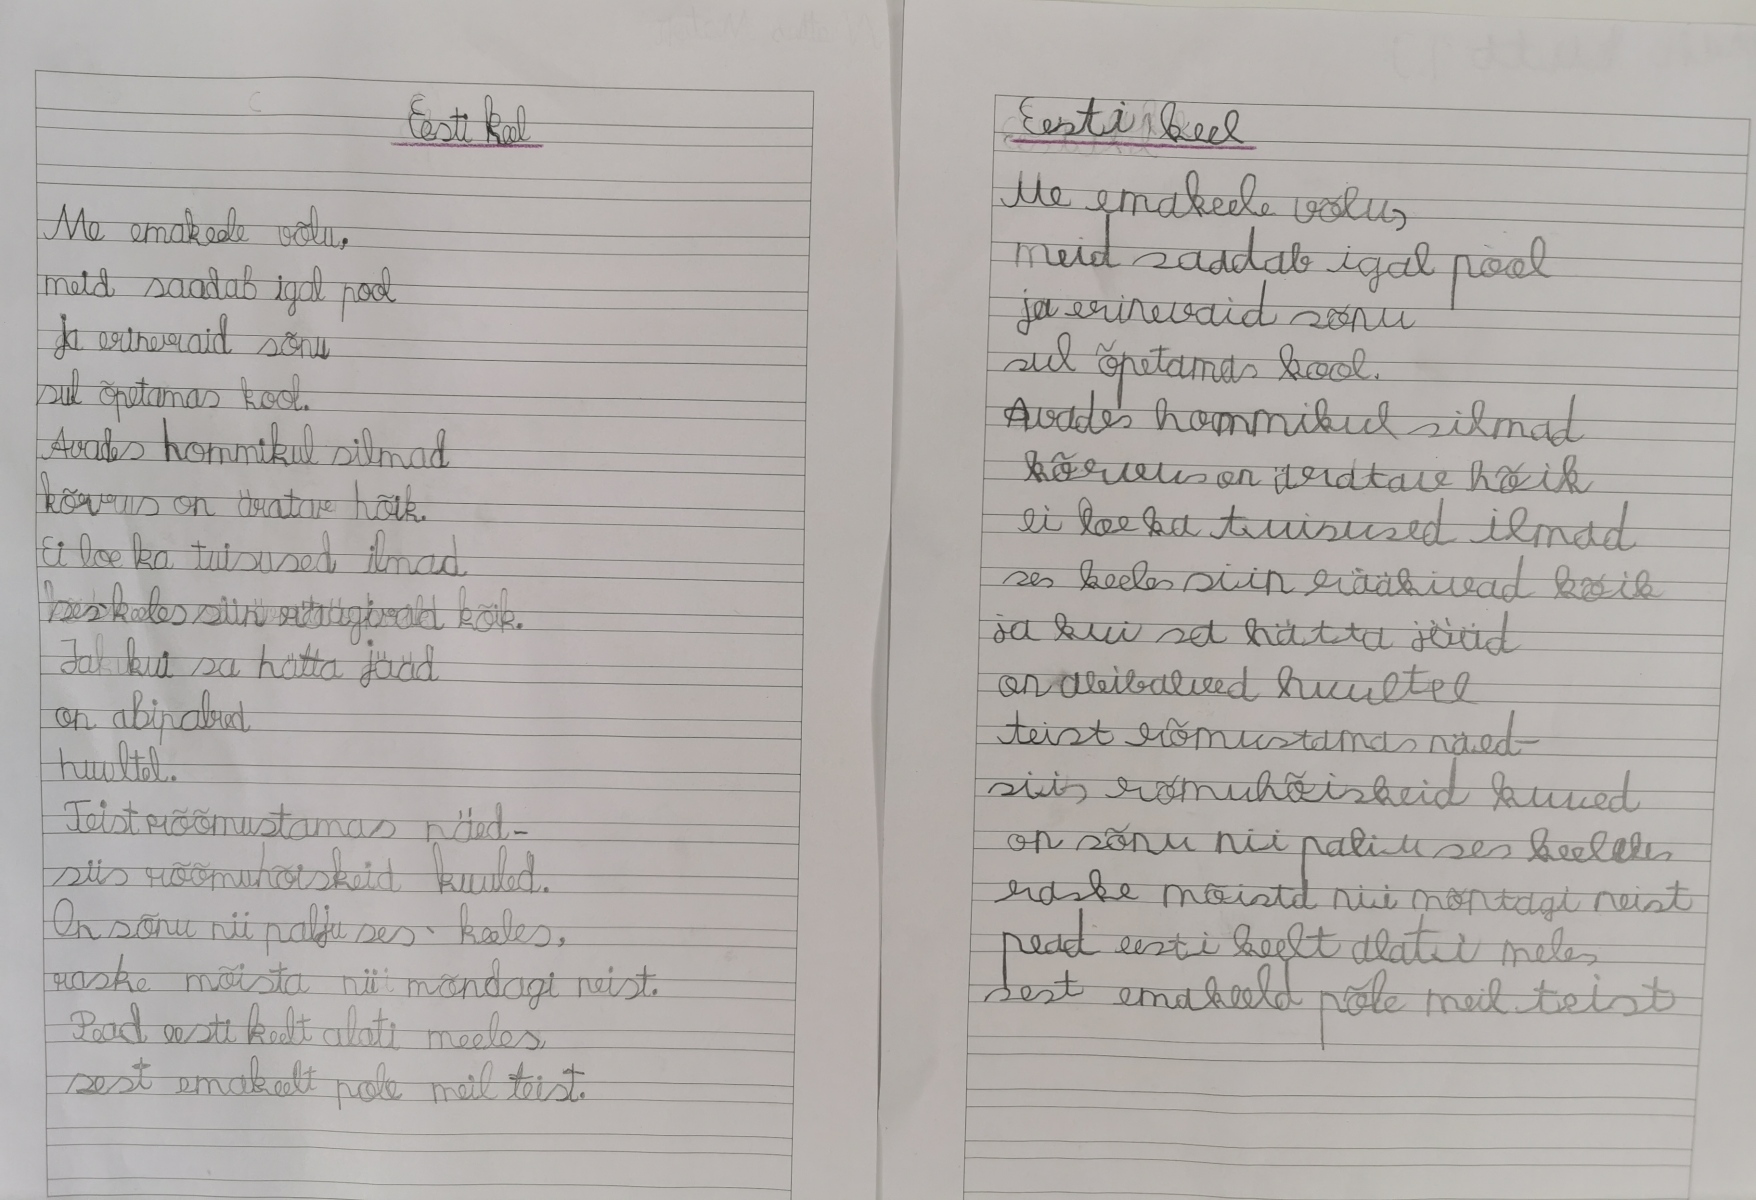 Eesti keel
Me emakeele võlu,
meid saadab igal pool
ja erinevaid sõnu
sul õpetamas kool.
Avades hommikul silmad
kõrvus on äratav hõik.
Ei loe ka tuisused ilmad
keeles siin kõik.
kui sa hätta jääd
on
huultel.
Teist rõõmustamas näed-
siis rõõmuhõiskeid kuuled.
On sõnu nii palju ses keeles,
raske mõista nii mõndagi neist.
Pead eesti keelt alati meeles,
sest emakeelt pole meil teist.
Eesti keel
Me emakeele võlu,
meid saadab igal pool
ja erinevaid sõnu
sul õpetamas kool.
Avades hommikul silmad
on hõik
ei loe ka tuisused ilmad
ses keeles siin räākivad kõik
ja kui sa hätta jääd
on huultel
teist rõmustamas näed-
siis rõmuhõiskeid
on sõnu nii palju ses
raske mõista nii mõntagi neist
pead eesti keelt alati meles
sest emakeeld põle meil teist